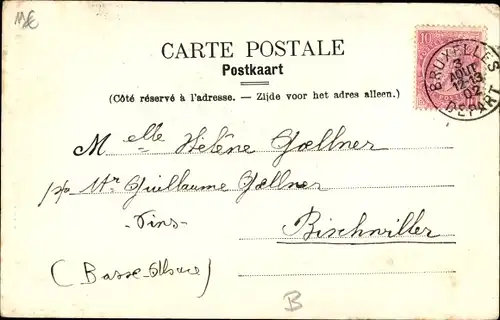 CARTE POSTALE
Postkaart
(Côté réservé à l'adresse. — Zijde voor het adres alleen.)
10
BRUXELLES
3
AOUT
12-13
02
DEPART
Melle Hélène Gœllner
p/o Mr Guillaume Gœllner
- Vins -
Bischwiller
(Basse-Alsace)
B